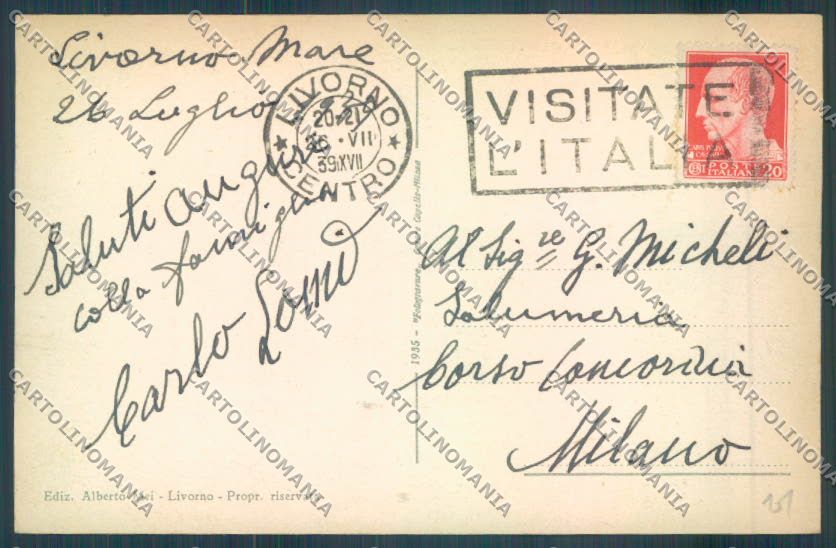 Livorno Mare
26 Luglio 939
Saluti auguri
colla famiglia
Carlo Lomi
LIVORNO
20-21
26 · VII
39 XVII
CENTRO
VISITATE
L'ITALIA
POSTE
ITALIANE
20
Al Sig.re G. Micheli
Salumeria
Corso Concordia
Milano
1935 - "Fotogravure" Cesare Capello-Milano
Ediz. Alberto - Livorno - Propr. riservata
CARTOLINOMANIA